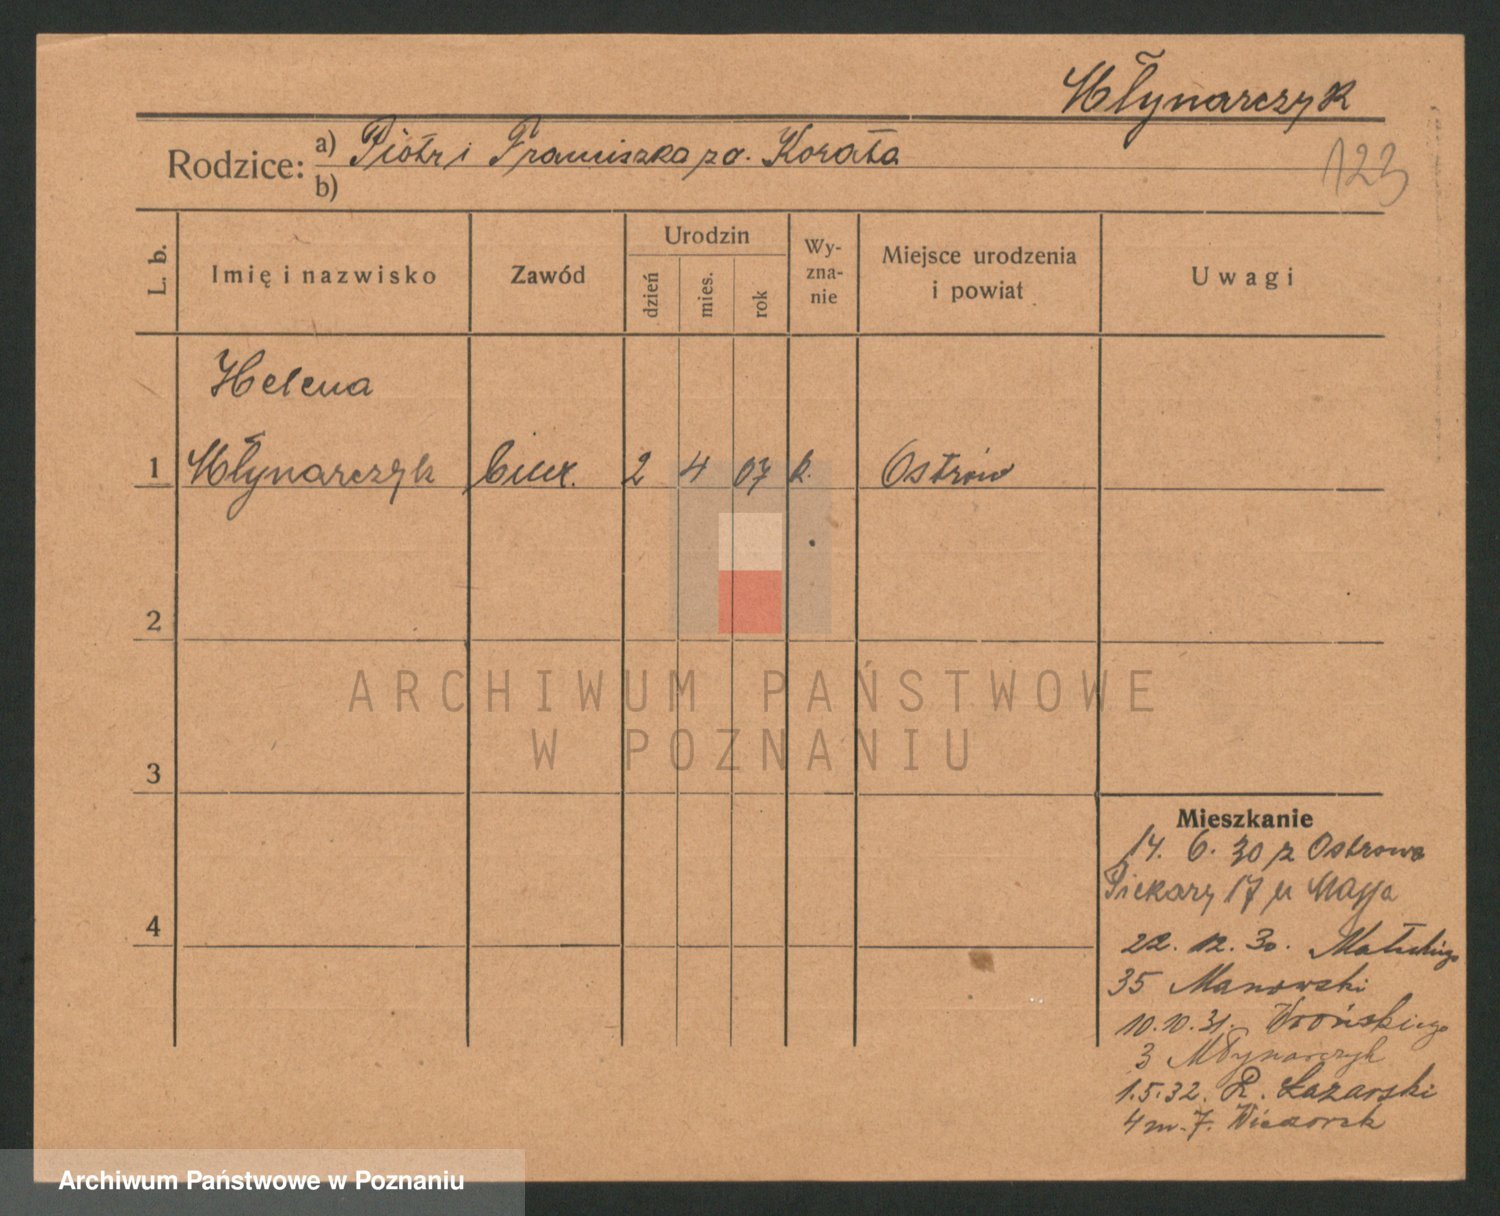 Młynarczyk
Rodzice: a) Piotr i Franciszka z d. Korata
b)
123
L. b.
Imię i nazwisko
Zawód
Urodzin
dzień
mies.
rok
Wy-
zna-
nie
Miejsce urodzenia
i powiat
Uwagi
Helena
1 Młynarczyk 2 4 07 k. Ostrów
2
3
4
ARCHIWUM PAŃSTWOWE
W POZNANIU
Mieszkanie
14. 6. 30 z Ostrowa
Piekary 17 u Maya
22. 12. 30. Matuckiego
35 Manowski
10.10.31. Wrońskiego
3 Młynarczyk
1.5.32. R. Łazarski
4 m. 7.
Archiwum Państwowe w Poznaniu